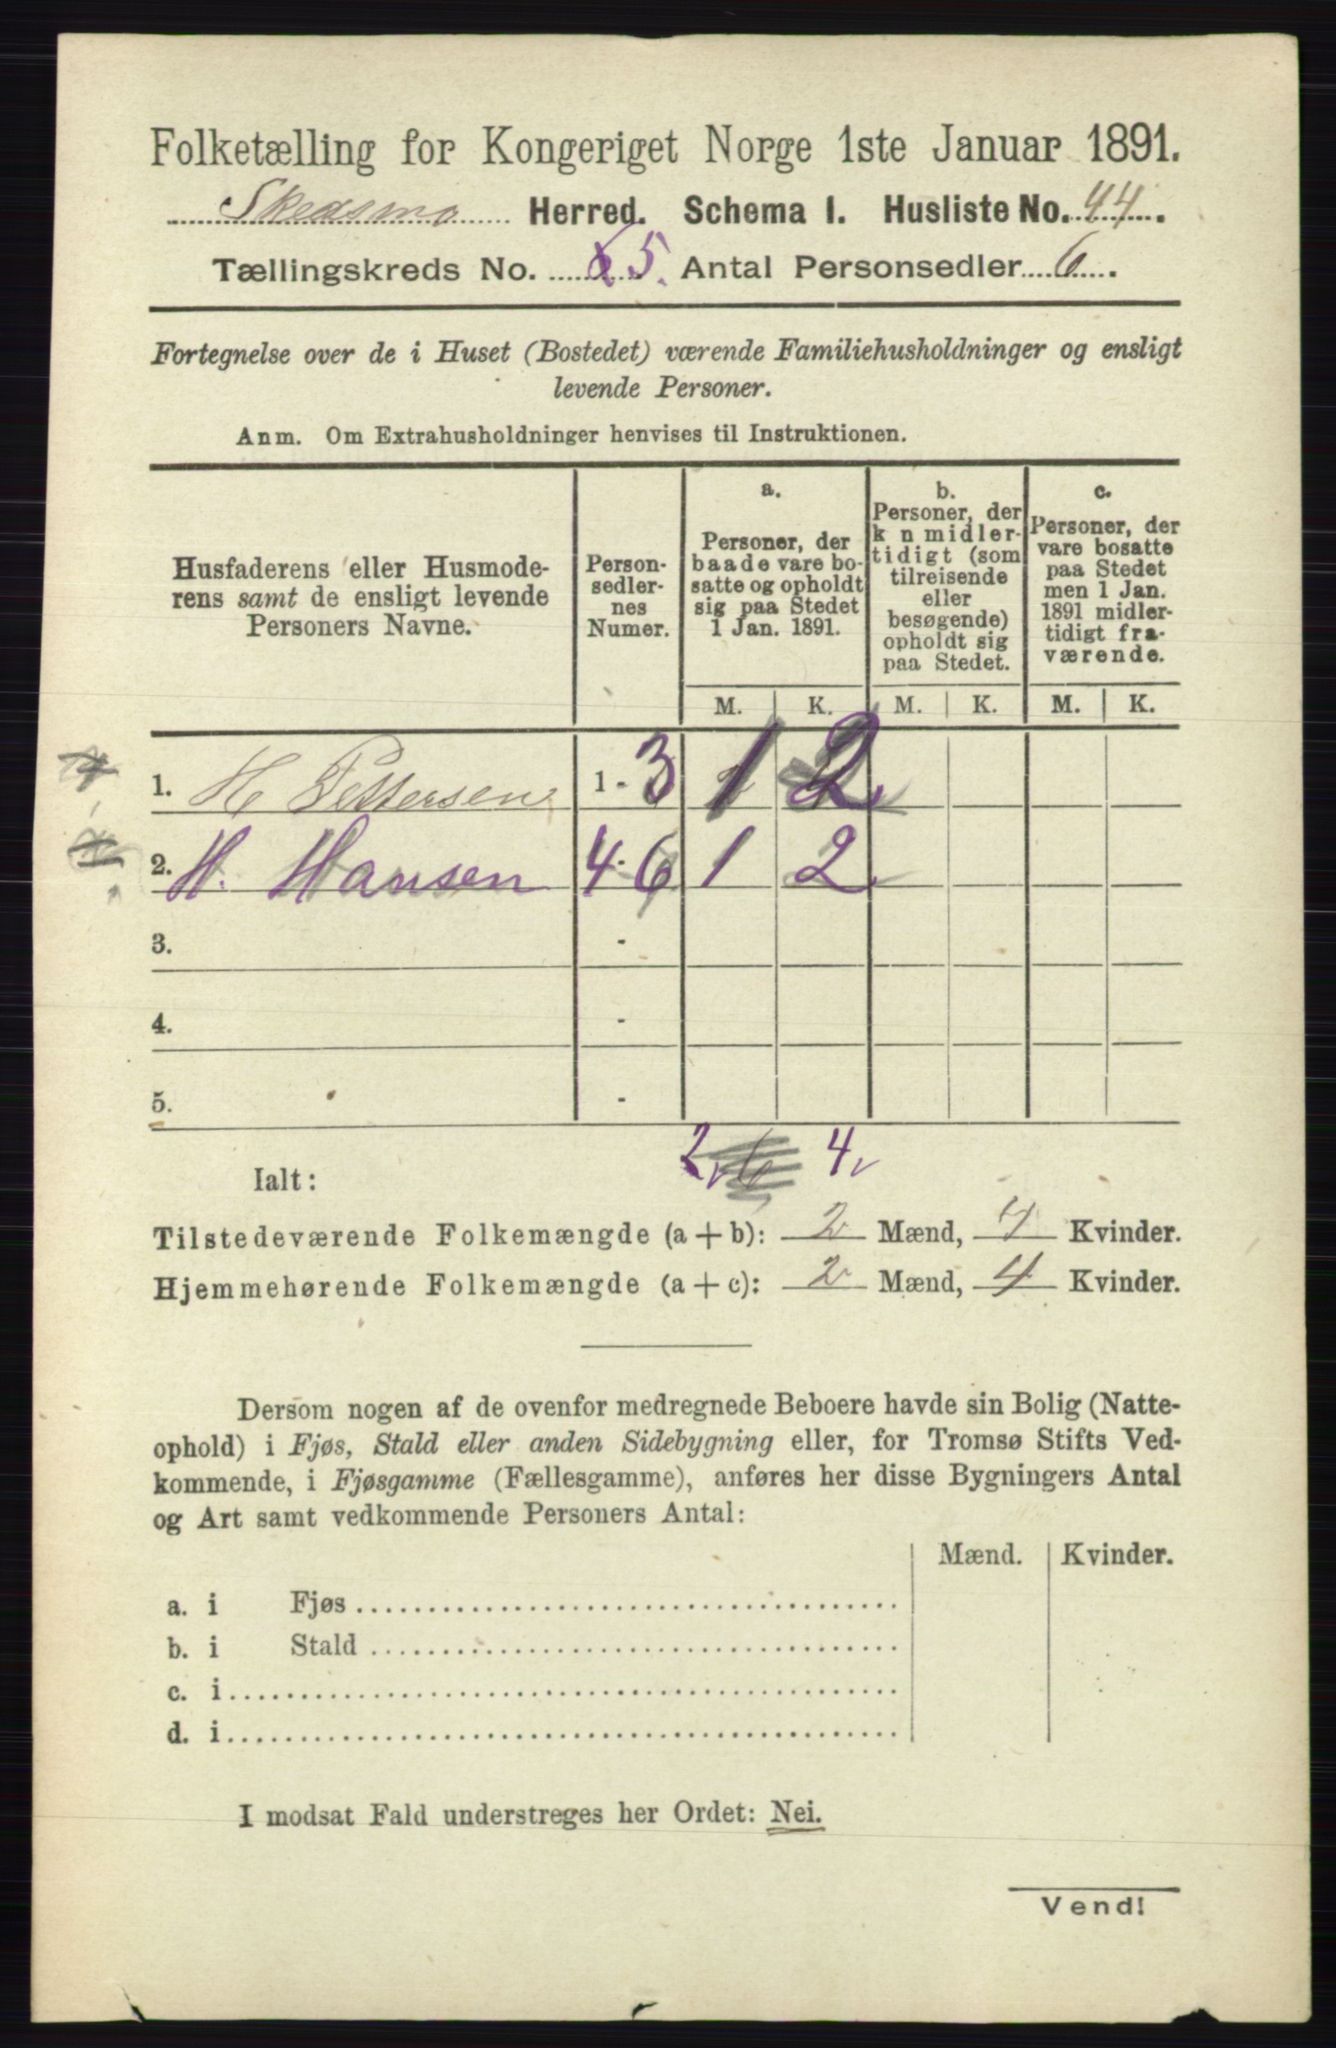 Folketælling for Kongeriget Norge 1ste Januar 1891.
Skedsmo Herred. Schema I. Husliste No. 44.
Tællingskreds No. 5. Antal Personsedler 6.
Fortegnelse over de i Huset (Bostedet) værende Familiehusholdninger og ensligt
levende Personer.
Anm. Om Extrahusholdninger henvises til Instruktionen.
Husfaderens eller Husmode-
rens samt de ensligt levende
Personers Navne.
Person-
sedler-
nes
Numer.
a.
Personer, der
baade vare bo-
satte og opholdt
sig paa Stedet
1 Jan. 1891.
b.
Personer, der
k n midler-
tidigt (som
tilreisende
eller
besøgende)
opholdt sig
paa Stedet.
c.
Personer, der
vare bosatte
paa Stedet
men 1 Jan.
1891 midler-
tidigt fra-
værende.
M. K. M. K. M. K.
1. H Pettersen 1 - 3 1 2
2. H. Hansen 4 - 6 1 2
3. -
4. -
5. -
2 6 4
Ialt:
Tilstedeværende Folkemængde (a + b): 2 Mænd, 4 Kvinder.
Hjemmehørende Folkemængde (a + c): 2 Mænd, 4 Kvinder.
Dersom nogen af de ovenfor medregnede Beboere havde sin Bolig (Natte-
ophold) i Fjøs, Stald eller anden Sidebygning eller, for Tromsø Stifts Ved-
kommende, i Fjøsgamme (Fællesgamme), anføres her disse Bygningers Antal
og Art samt vedkommende Personers Antal:
Mænd. Kvinder.
a. i Fjøs
b. i Stald
c. i
d. i
I modsat Fald understreges her Ordet: Nei.
Vend!